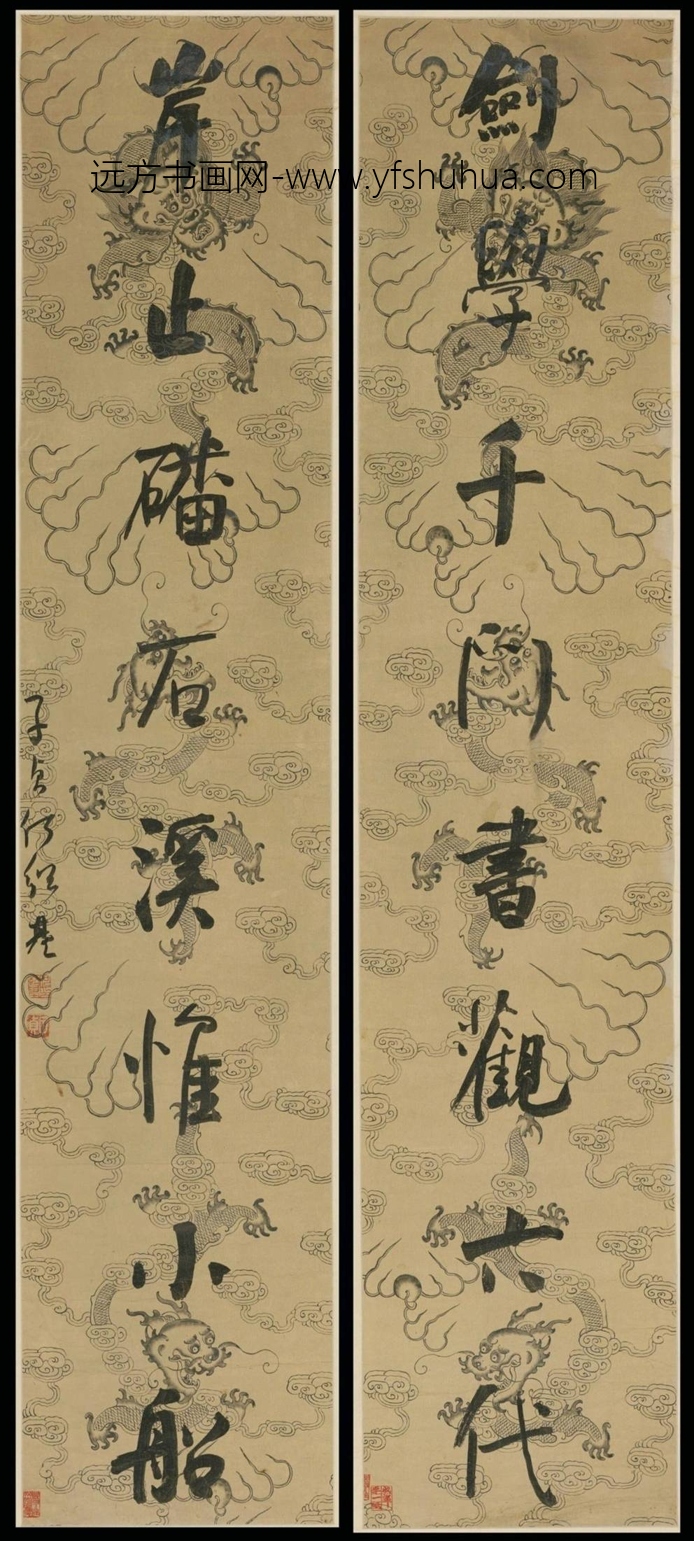 远方书画网-www.yfshuhua.com
劍學千門書觀六代
岸止磻石溪惟小船
子貞何紹基